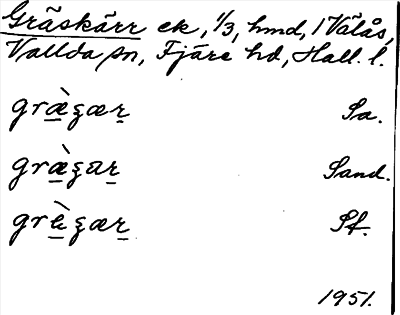 Gräskärr ek, 1/3, hmd, i Välås,
Vallda sn, Fjäre hd, Hall. l.
græ̀ʒær Sa.
græ̀ʒar Sand.
grèʒær Sf.
1951.